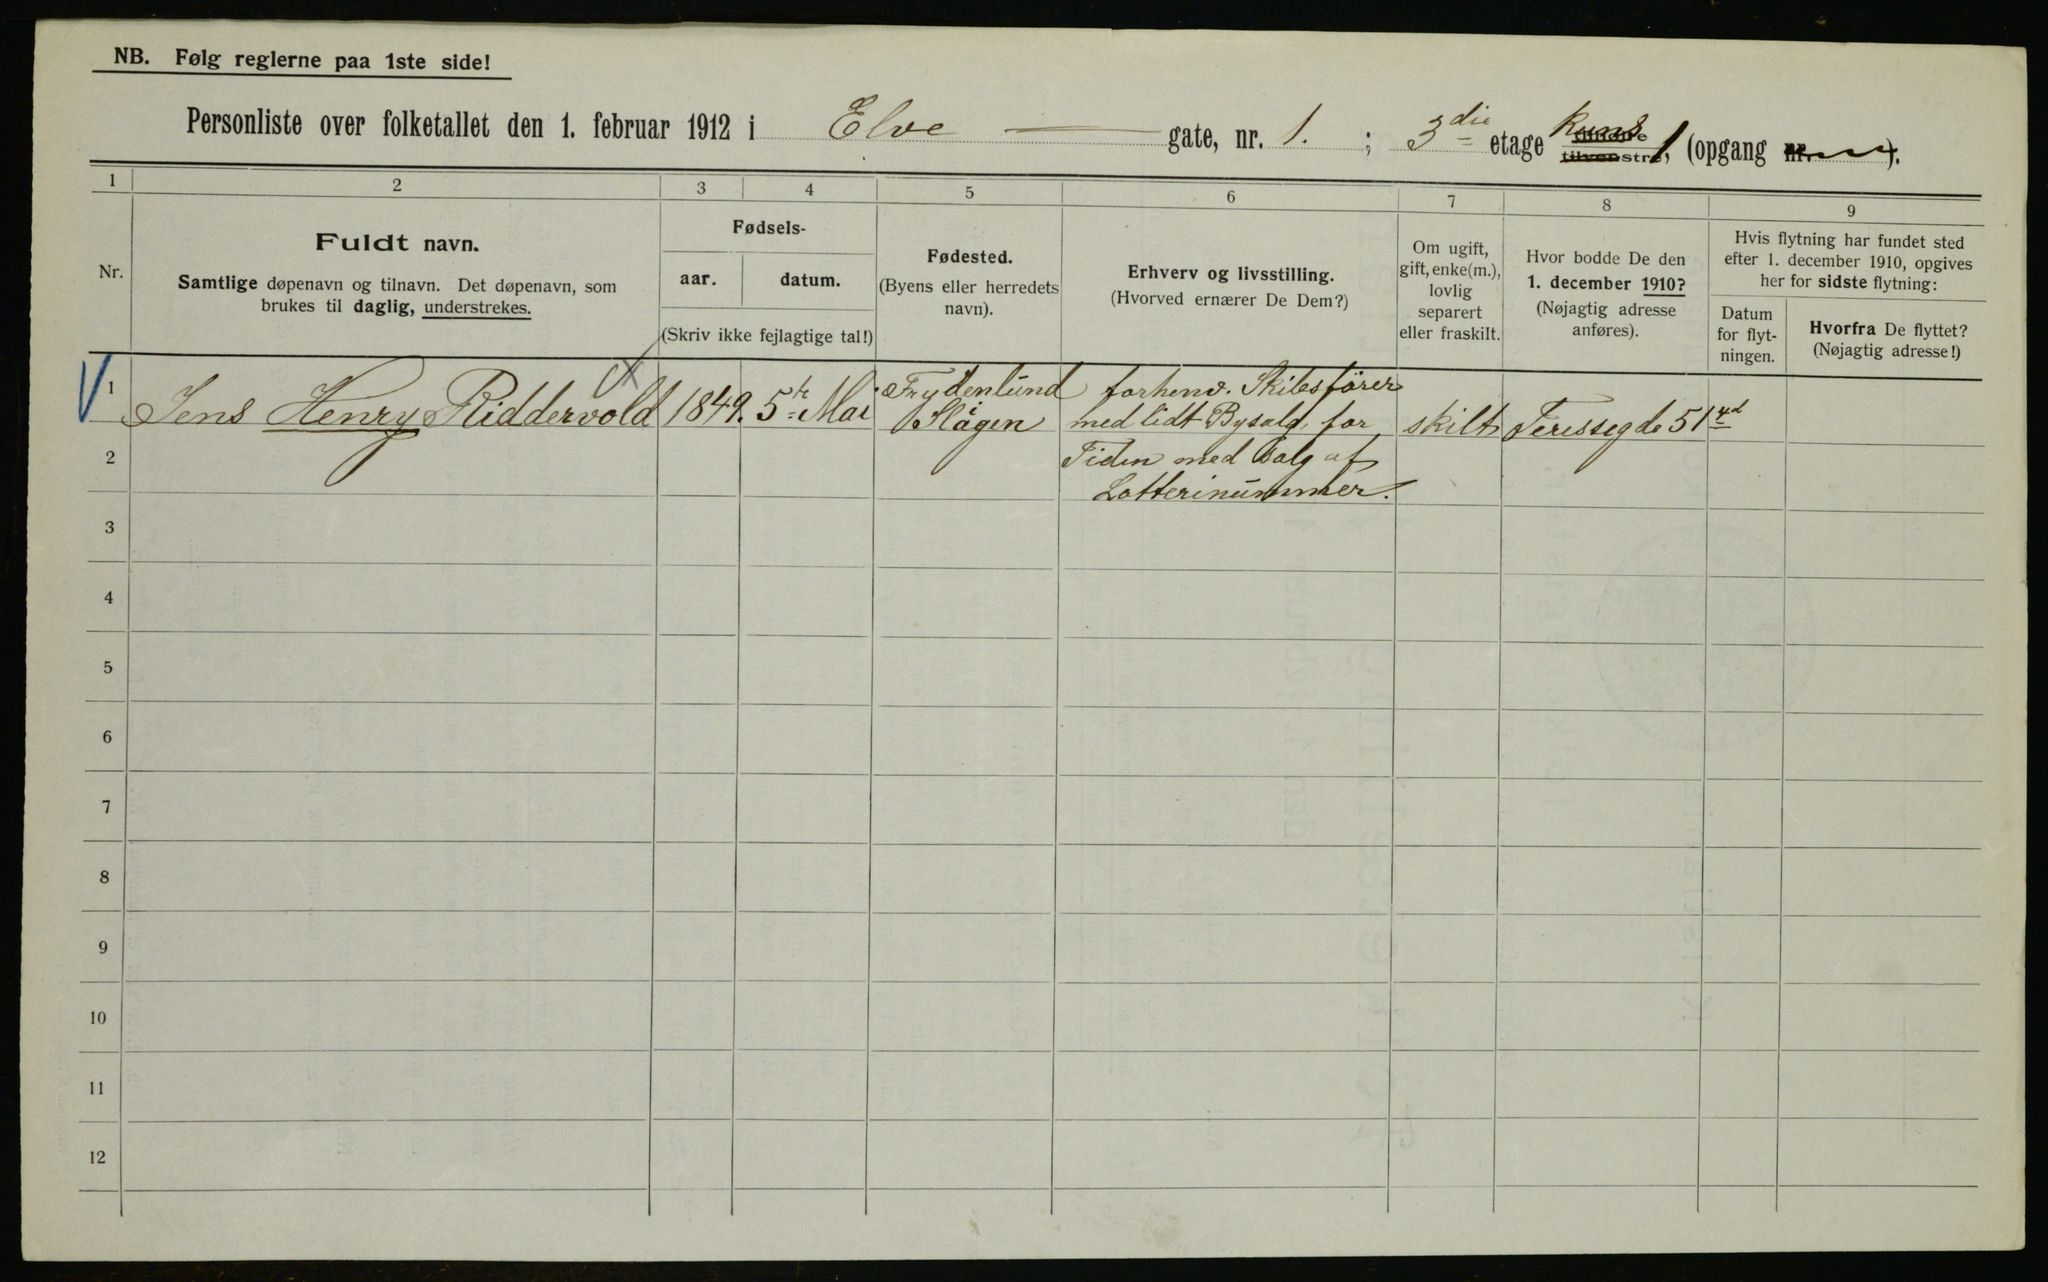 NB. Følg reglerne paa 1ste side!
Personliste over folketallet den 1. februar 1912 i Elve gate, nr. 1. ; 3die etage kuns 1 (opgang nr. ).
1 2 3 4 5 6 7 8 9
Nr.
Fuldt navn.
Samtlige døpenavn og tilnavn. Det døpenavn, som
brukes til daglig, understrekes.
Fødsels-
aar. datum.
(Skriv ikke fejlagtige tal!)
Fødested.
(Byens eller herredets
navn).
Erhverv og livsstilling.
(Hvorved ernærer De Dem?)
Om ugift,
gift, enke(m.),
lovlig
separert
eller fraskilt.
Hvor bodde De den
1. december 1910?
(Nøjagtig adresse
anføres).
Hvis flytning har fundet sted
efter 1. december 1910, opgives
her for sidste flytning:
Datum
for flyt-
ningen.
Hvorfra De flyttet?
(Nøjagtig adresse!)
1 Jens Henry Riddervold 1849. 5te Mai
Frydenlund
Slagen
forhenv. Skibsfører
med lidt Bysalg, for
Tiden med Salg af
Lotterinummer.
skilt
51
2
3
4
5
6
7
8
9
10
11
12